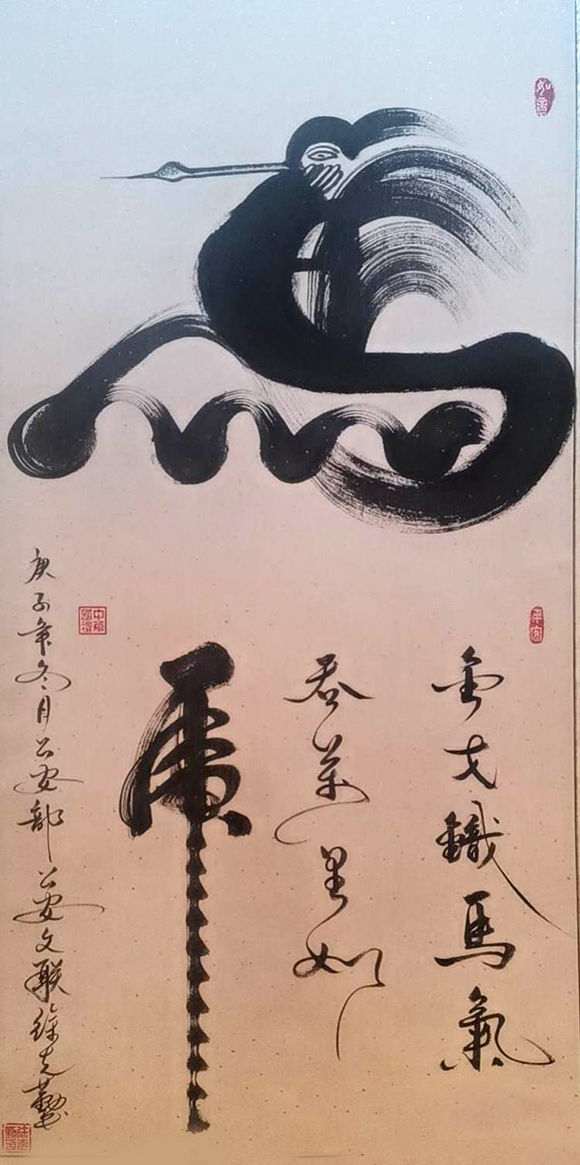 馬
金戈鐵馬氣
吞萬里如
虎
庚子年冬月公安部公安文联徐克勤
如意